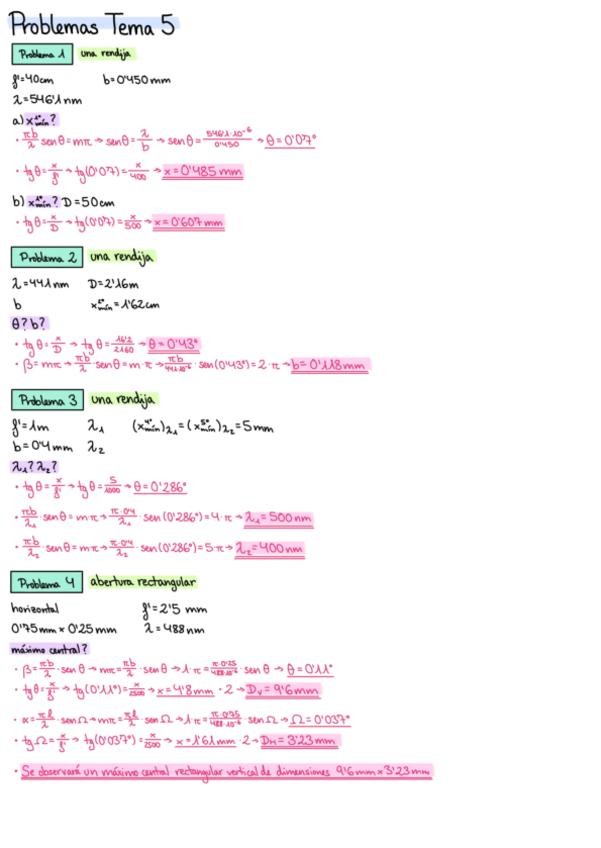 Problemas Tema 5
Problema 1 una rendija
f'=40cm b=0'450mm
λ=546'1nm
a) x^{1º}_{mín}?
· πb/λ senθ=mπ → senθ=λ/b → senθ=546'1·10^{-6}/0'450 → θ=0'07°
· tgθ=x/f' → tg(0'07)=x/400 → x=0'485mm
b) x^{1º}_{mín}? D=50cm
· tgθ=x/D → tg(0'07)=x/500 → x=0'607mm
Problema 2 una rendija
λ=441nm D=2'16m
b x^{2º}_{mín}=1'62cm
θ? b?
· tgθ=x/D → tgθ=16'2/2160 → θ=0'43°
· β=mπ → πb/λ·senθ=m·π → πb/441·10^{-6}·sen(0'43°)=2·π → b=0'118mm
Problema 3 una rendija
f'=1m λ₁ (x^{4º}_{mín})_{λ₁}=(x^{5º}_{mín})_{λ₂}=5mm
b=0'4mm λ₂
λ₁? λ₂?
· tgθ=x/f' → tgθ=5/1000 → θ=0'286°
· πb/λ₁·senθ=mπ → π·0'4/λ₁·sen(0'286°)=4·π → λ₁=500nm
· πb/λ₂·senθ=mπ → π·0'4/λ₂·sen(0'286°)=5·π → λ₂=400nm
Problema 4 abertura rectangular
horizontal f'=2'5 mm
0'75mm×0'25mm λ=488nm
máximo central?
· β=πb/λ·senθ → mπ=πb/λ·senθ → 1·π=π·0'25/488·10^{-6}·senθ → θ=0'11°
· tgθ=x/f' → tg(0'11°)=x/2500 → x=4'8mm·2 → Dᵥ=9'6mm
· α=πl/λ·senΩ → mπ=πl/λ·senΩ → 1·π=π·0'75/488·10^{-6}·senΩ → Ω=0'037°
· tgΩ=x/f' → tg(0'037°)=x/2500 → x=1'61mm·2 → D_H=3'23mm
· Se observará un máximo central rectangular vertical de dimensiones 9'6mm×3'23mm